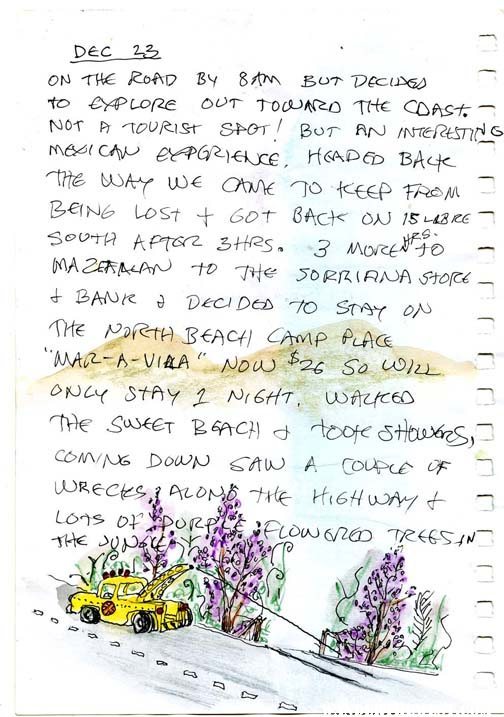 DEC 23
ON THE ROAD BY 8AM BUT DECIDED
TO EXPLORE OUT TOWARD THE COAST.
NOT A TOURIST SPOT! BUT AN INTERESTING
MEXICAN EXPERIENCE. HEADED BACK
THE WAY WE CAME TO KEEP FROM
BEING LOST & GOT BACK ON 15 LIBRE
SOUTH AFTER 3HRS. 3 MORE HRS. TO
MAZATALAN TO THE SORRIANA STORE
& BANK & DECIDED TO STAY ON
THE NORTH BEACH CAMP PLACE
"MAR-A-VILLA" NOW $26 SO WILL
ONLY STAY 1 NIGHT. WALKED
THE SWEET BEACH & TOOK SHOWERS,
COMING DOWN SAW A COUPLE OF
WRECKS, ALONG THE HIGHWAY &
LOTS OF PURPLE FLOWERED TREES IN
THE JUNGLE